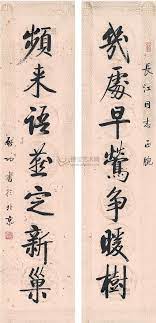 長江同志正腕
幾處早鶯争暖樹
頻来語燕定新巢
啟功書於北京